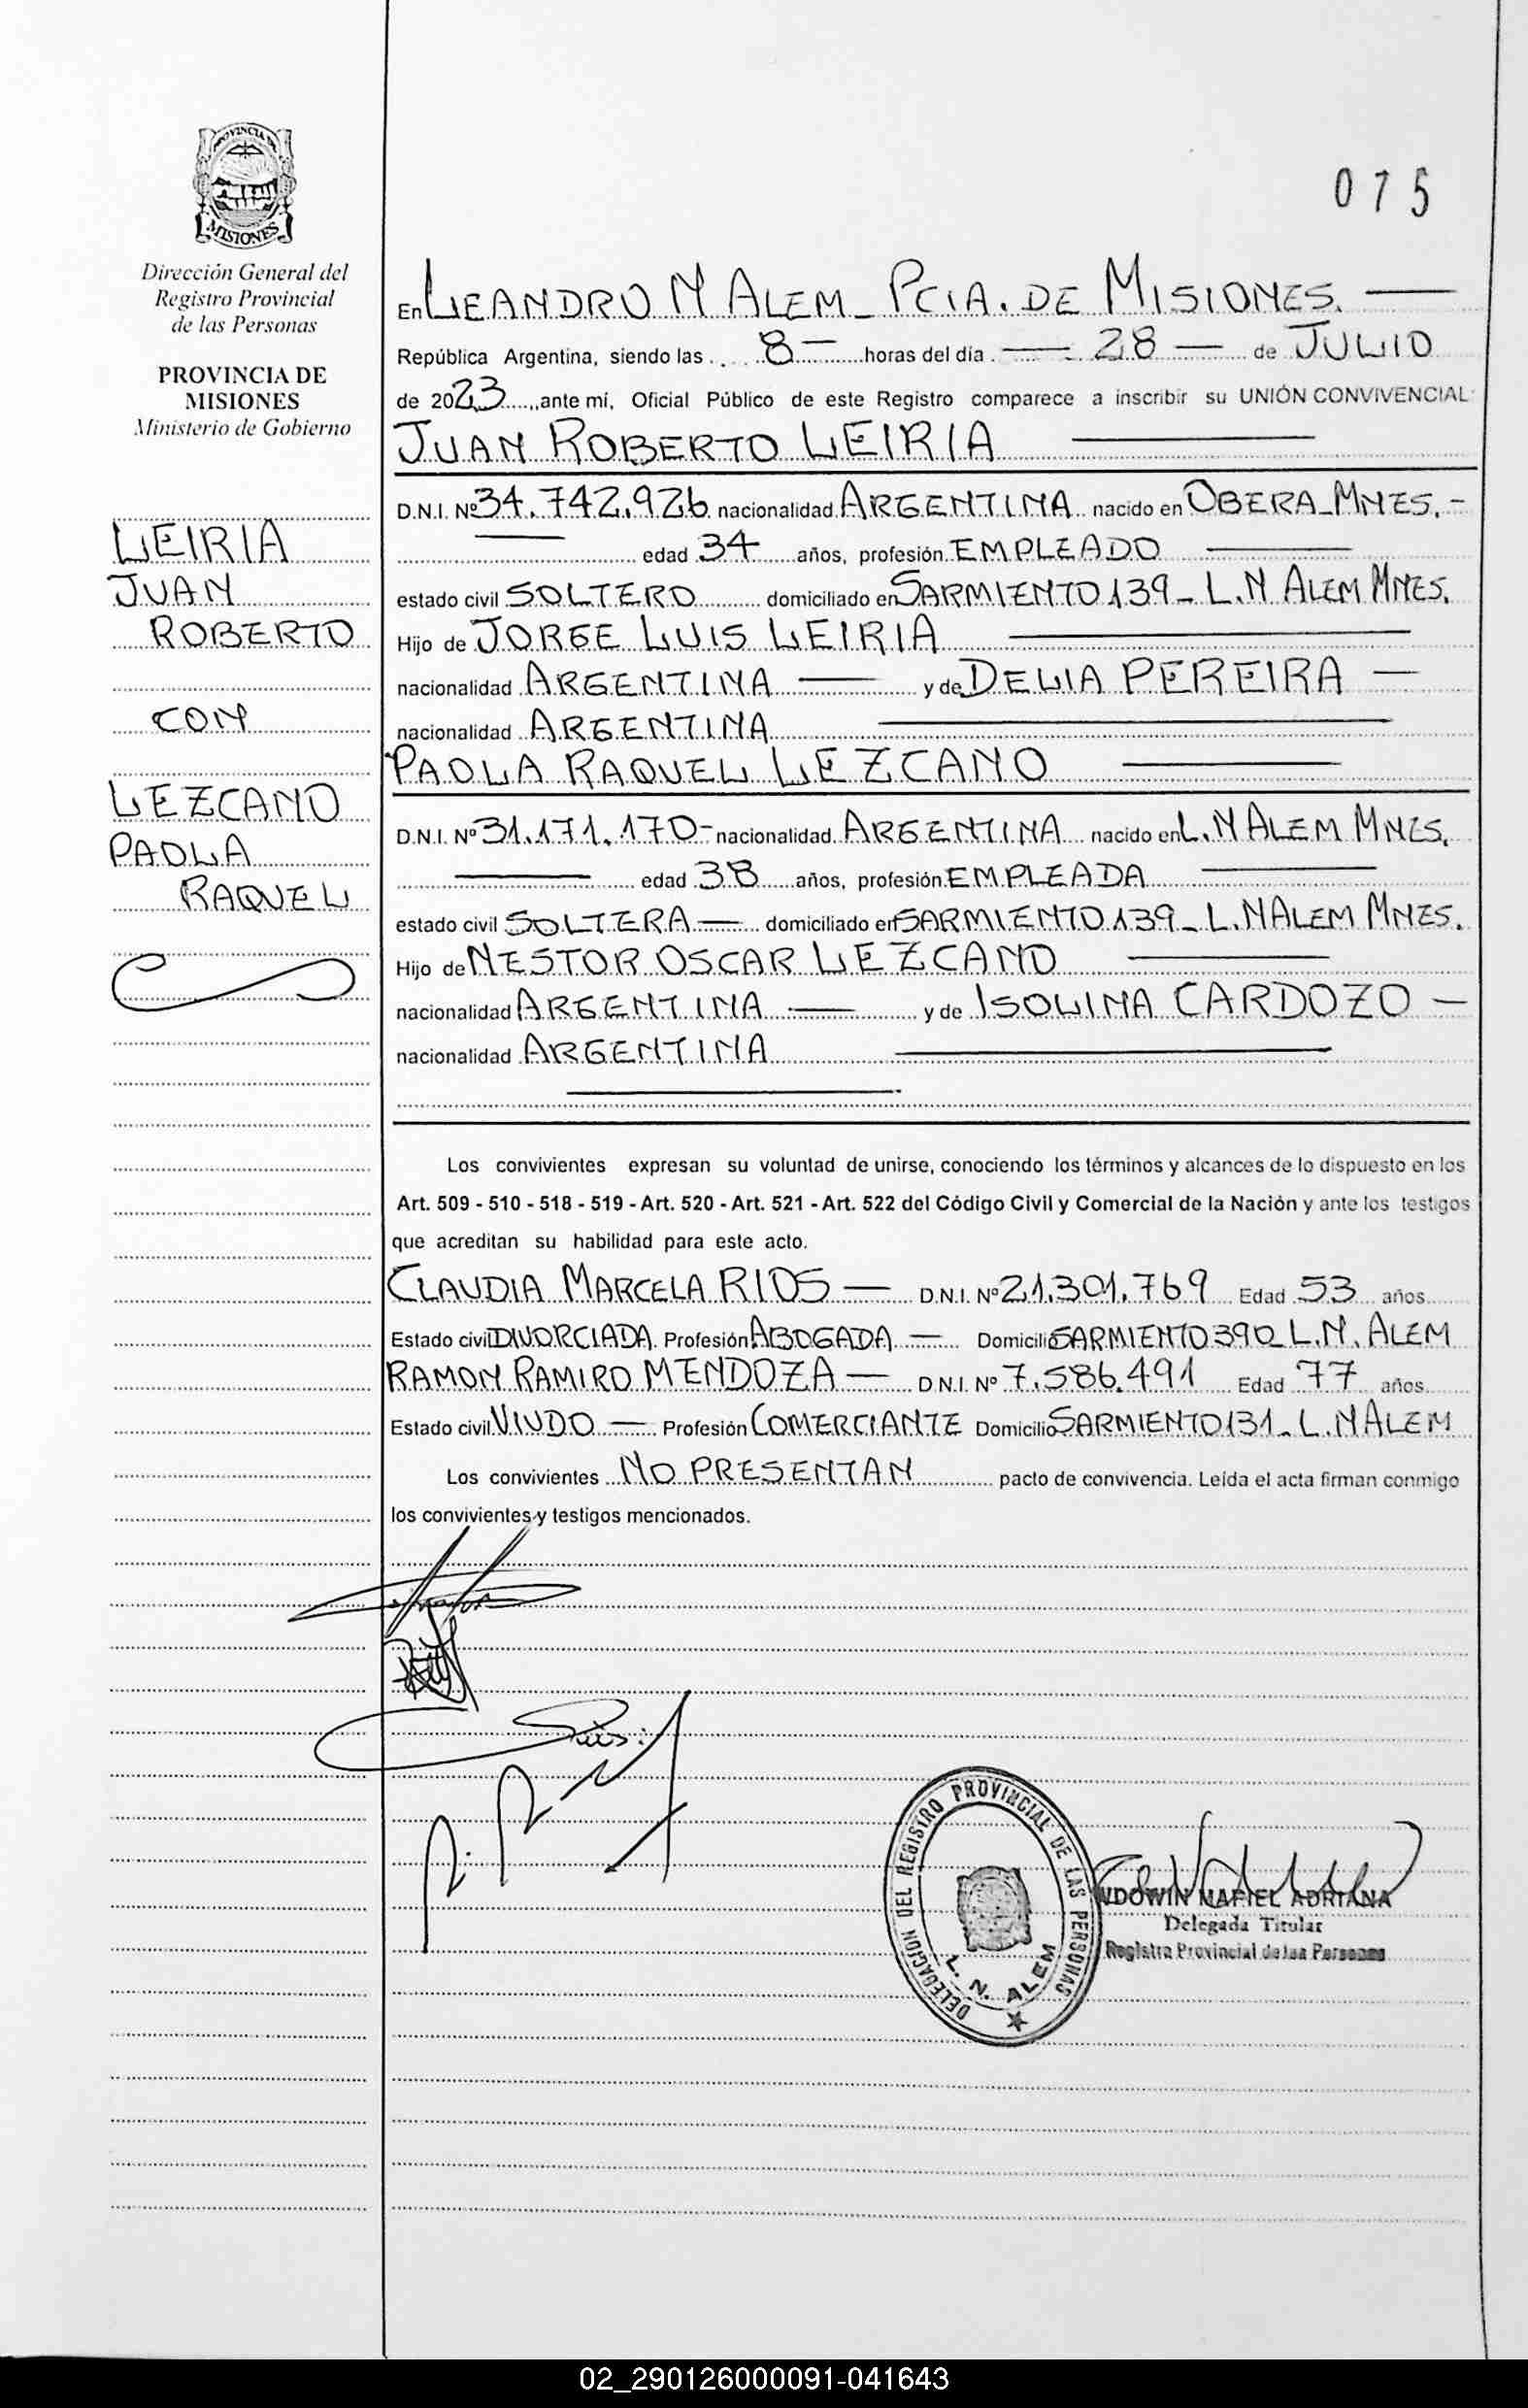 PROVINCIA DE
MISIONES
Dirección General del
Registro Provincial
de las Personas
PROVINCIA DE
MISIONES
Ministerio de Gobierno
LEIRIA
JUAN
ROBERTO
CON
LEZCANO
PAOLA
RAQUEL
075
En LEANDRO N ALEM _ PCIA. DE MISIONES.
República Argentina, siendo las 8 horas del día 28 de JULIO
de 2023, ante mí, Oficial Público de este Registro comparece a inscribir su UNIÓN CONVIVENCIAL:
JUAN ROBERTO LEIRIA
D.N.I. Nº 34.742.926 nacionalidad ARGENTINA nacido en OBERA_MNES.-
edad 34 años, profesión EMPLEADO
estado civil SOLTERO domiciliado en SARMIENTO 139 _ L.N ALEM MNES.
Hijo de JORGE LUIS LEIRIA
nacionalidad ARGENTINA y de DELIA PEREIRA
nacionalidad ARGENTINA
PAOLA RAQUEL LEZCANO
D.N.I. Nº 31.171.170- nacionalidad ARGENTINA nacido en L.N ALEM MNES.
edad 38 años, profesión EMPLEADA
estado civil SOLTERA domiciliado en SARMIENTO 139 _ L.N ALEM MNES.
Hijo de NESTOR OSCAR LEZCANO
nacionalidad ARGENTINA y de ISOLINA CARDOZO
nacionalidad ARGENTINA
Los convivientes expresan su voluntad de unirse, conociendo los términos y alcances de lo dispuesto en los
Art. 509 - 510 - 518 - 519 - Art. 520 - Art. 521 - Art. 522 del Código Civil y Comercial de la Nación y ante los testigos
que acreditan su habilidad para este acto.
CLAUDIA MARCELA RIOS D.N.I. Nº 21.301.769 Edad 53 años
Estado civil DIVORCIADA Profesión ABOGADA Domicilio SARMIENTO 390 L.N. ALEM
RAMON RAMIRO MENDOZA D.N.I. Nº 7.586.491 Edad 77 años
Estado civil VIUDO Profesión COMERCIANTE Domicilio SARMIENTO 131 _ L.N ALEM
Los convivientes NO PRESENTAN pacto de convivencia. Leída el acta firman conmigo
los convivientes y testigos mencionados.
DELEGACION DEL REGISTRO PROVINCIAL DE LAS PERSONAS
L. N. ALEM
ADRIANA
Delegada Titular
Registro Provincial de las Personas
02_290126000091-041643